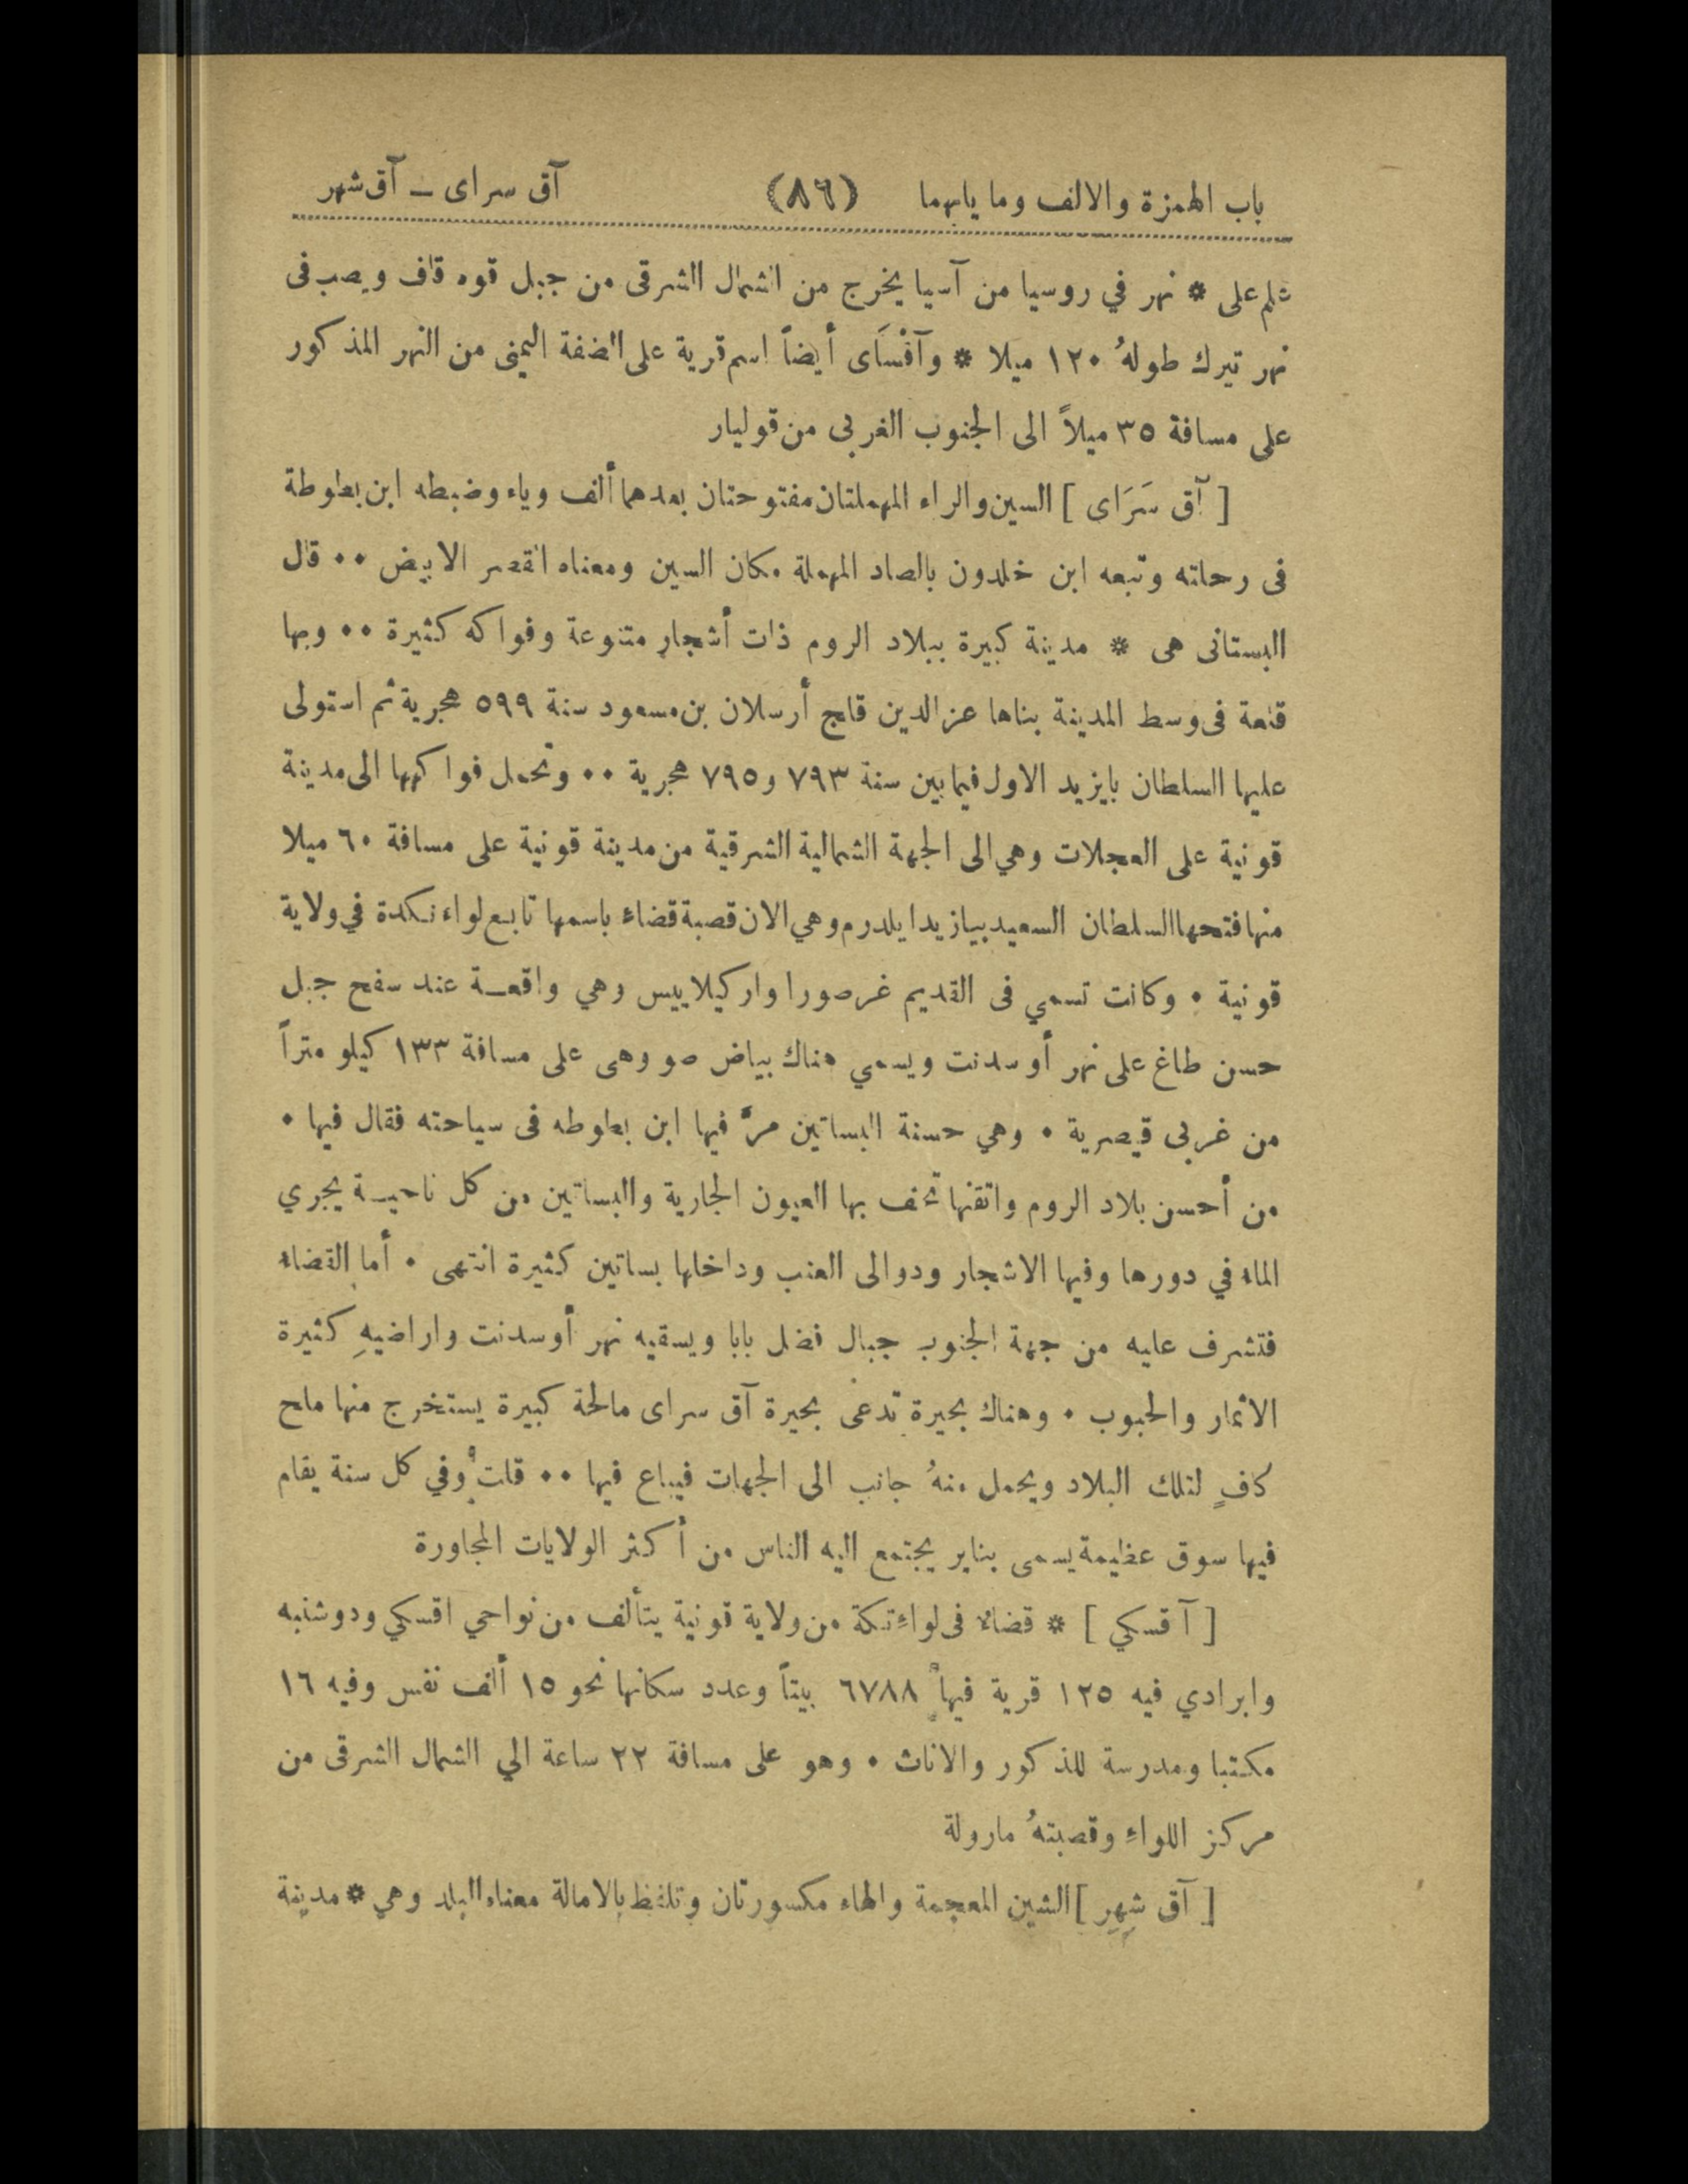 باب الهمزة والالف وما يليهما (٨٦) آق سراى ـ آق شهر
علم على * نهر في روسيا من آسيا يخرج من الشمال الشرقى من جبل قوه قاف ويصب فى
نهر تيرك طولهُ ١٢٠ ميلا * وآقْسَاى أيضاً اسم قرية على الضفة اليمنى من النهر المذكور
على مسافة ٣٥ ميلاً الى الجنوب الغربى من قوليار
[ آق سَرَاى ] السين والراء المهملتان مفتوحتان بعدهما ألف وياء وضبطه ابن بطوطة
فى رحلته وتبعه ابن خلدون بالصاد المهملة مكان السين ومعناه القصر الابيض ٠٠ قال
البستانى هى * مدينة كبيرة ببلاد الروم ذات أشجار متنوعة وفواكه كثيرة ٠٠ وبها
قلعة فى وسط المدينة بناها عز الدين قلج أرسلان بن مسعود سنة ٥٩٩ هجرية ثم استولى
عليها السلطان بايزيد الاول فيما بين سنة ٧٩٣ و٧٩٥ هجرية ٠٠ وتحمل فواكهها الى مدينة
قونية على العجلات وهي الى الجهة الشمالية الشرقية من مدينة قونية على مسافة ٦٠ ميلا
منها فتحها السلطان السعيد بيازيد ايلدرم وهي الان قصبة قضاء باسمها تابع لواء نكدة في ولاية
قونية ٠ وكانت تسمي فى القديم غرصورا واركيلاييس وهي واقعـة عند سفح جبل
حسن طاغ على نهر أوسدنت ويسمي هناك بياض صو وهى على مسافة ١٣٣ كيلو متراً
من غربى قيصرية ٠ وهي حسنة البساتين مرَّ فيها ابن بطوطه فى سياحته فقال فيها ٠
من أحسن بلاد الروم واتقنها تحف بها العيون الجارية والبساتين من كل ناحيـة يجري
الماء في دورها وفيها الاشجار ودوالى العنب وداخلها بساتين كثيرة انتهى ٠ أما القضاء
فتشرف عليه من جهة الجنوب جبال فضل بابا ويسقيه نهر أوسدنت واراضيهِ كثيرة
الاثمار والحبوب ٠ وهناك بحيرة تدعى بحيرة آق سراى مالحة كبيرة يستخرج منها ملح
كافٍ لتلك البلاد ويحمل منهُ جانب الى الجهات فيباع فيها ٠٠ قلت وفي كل سنة يقام
فيها سوق عظيمة يسمى بناير يجتمع اليه الناس من أكثر الولايات المجاورة
[ آقسكي ] * قضاء فى لواءِ تكة من ولاية قونية يتألف من نواحي اقسكي ودوشنبه
وابرادي فيه ١٢٥ قرية فيها ٦٧٨٨ بيتاً وعدد سكانها نحو ١٥ ألف نفس وفيه ١٦
مكتبا ومدرسة للذكور والاناث ٠ وهو على مسافة ٢٢ ساعة الي الشمال الشرقى من
مركز اللواءِ وقصبتهُ مارولة
[ آق شِهِر ] الشين المعجمة والهاء مكسورتان وتلفظ بالامالة معناه البلد وهي * مدينة